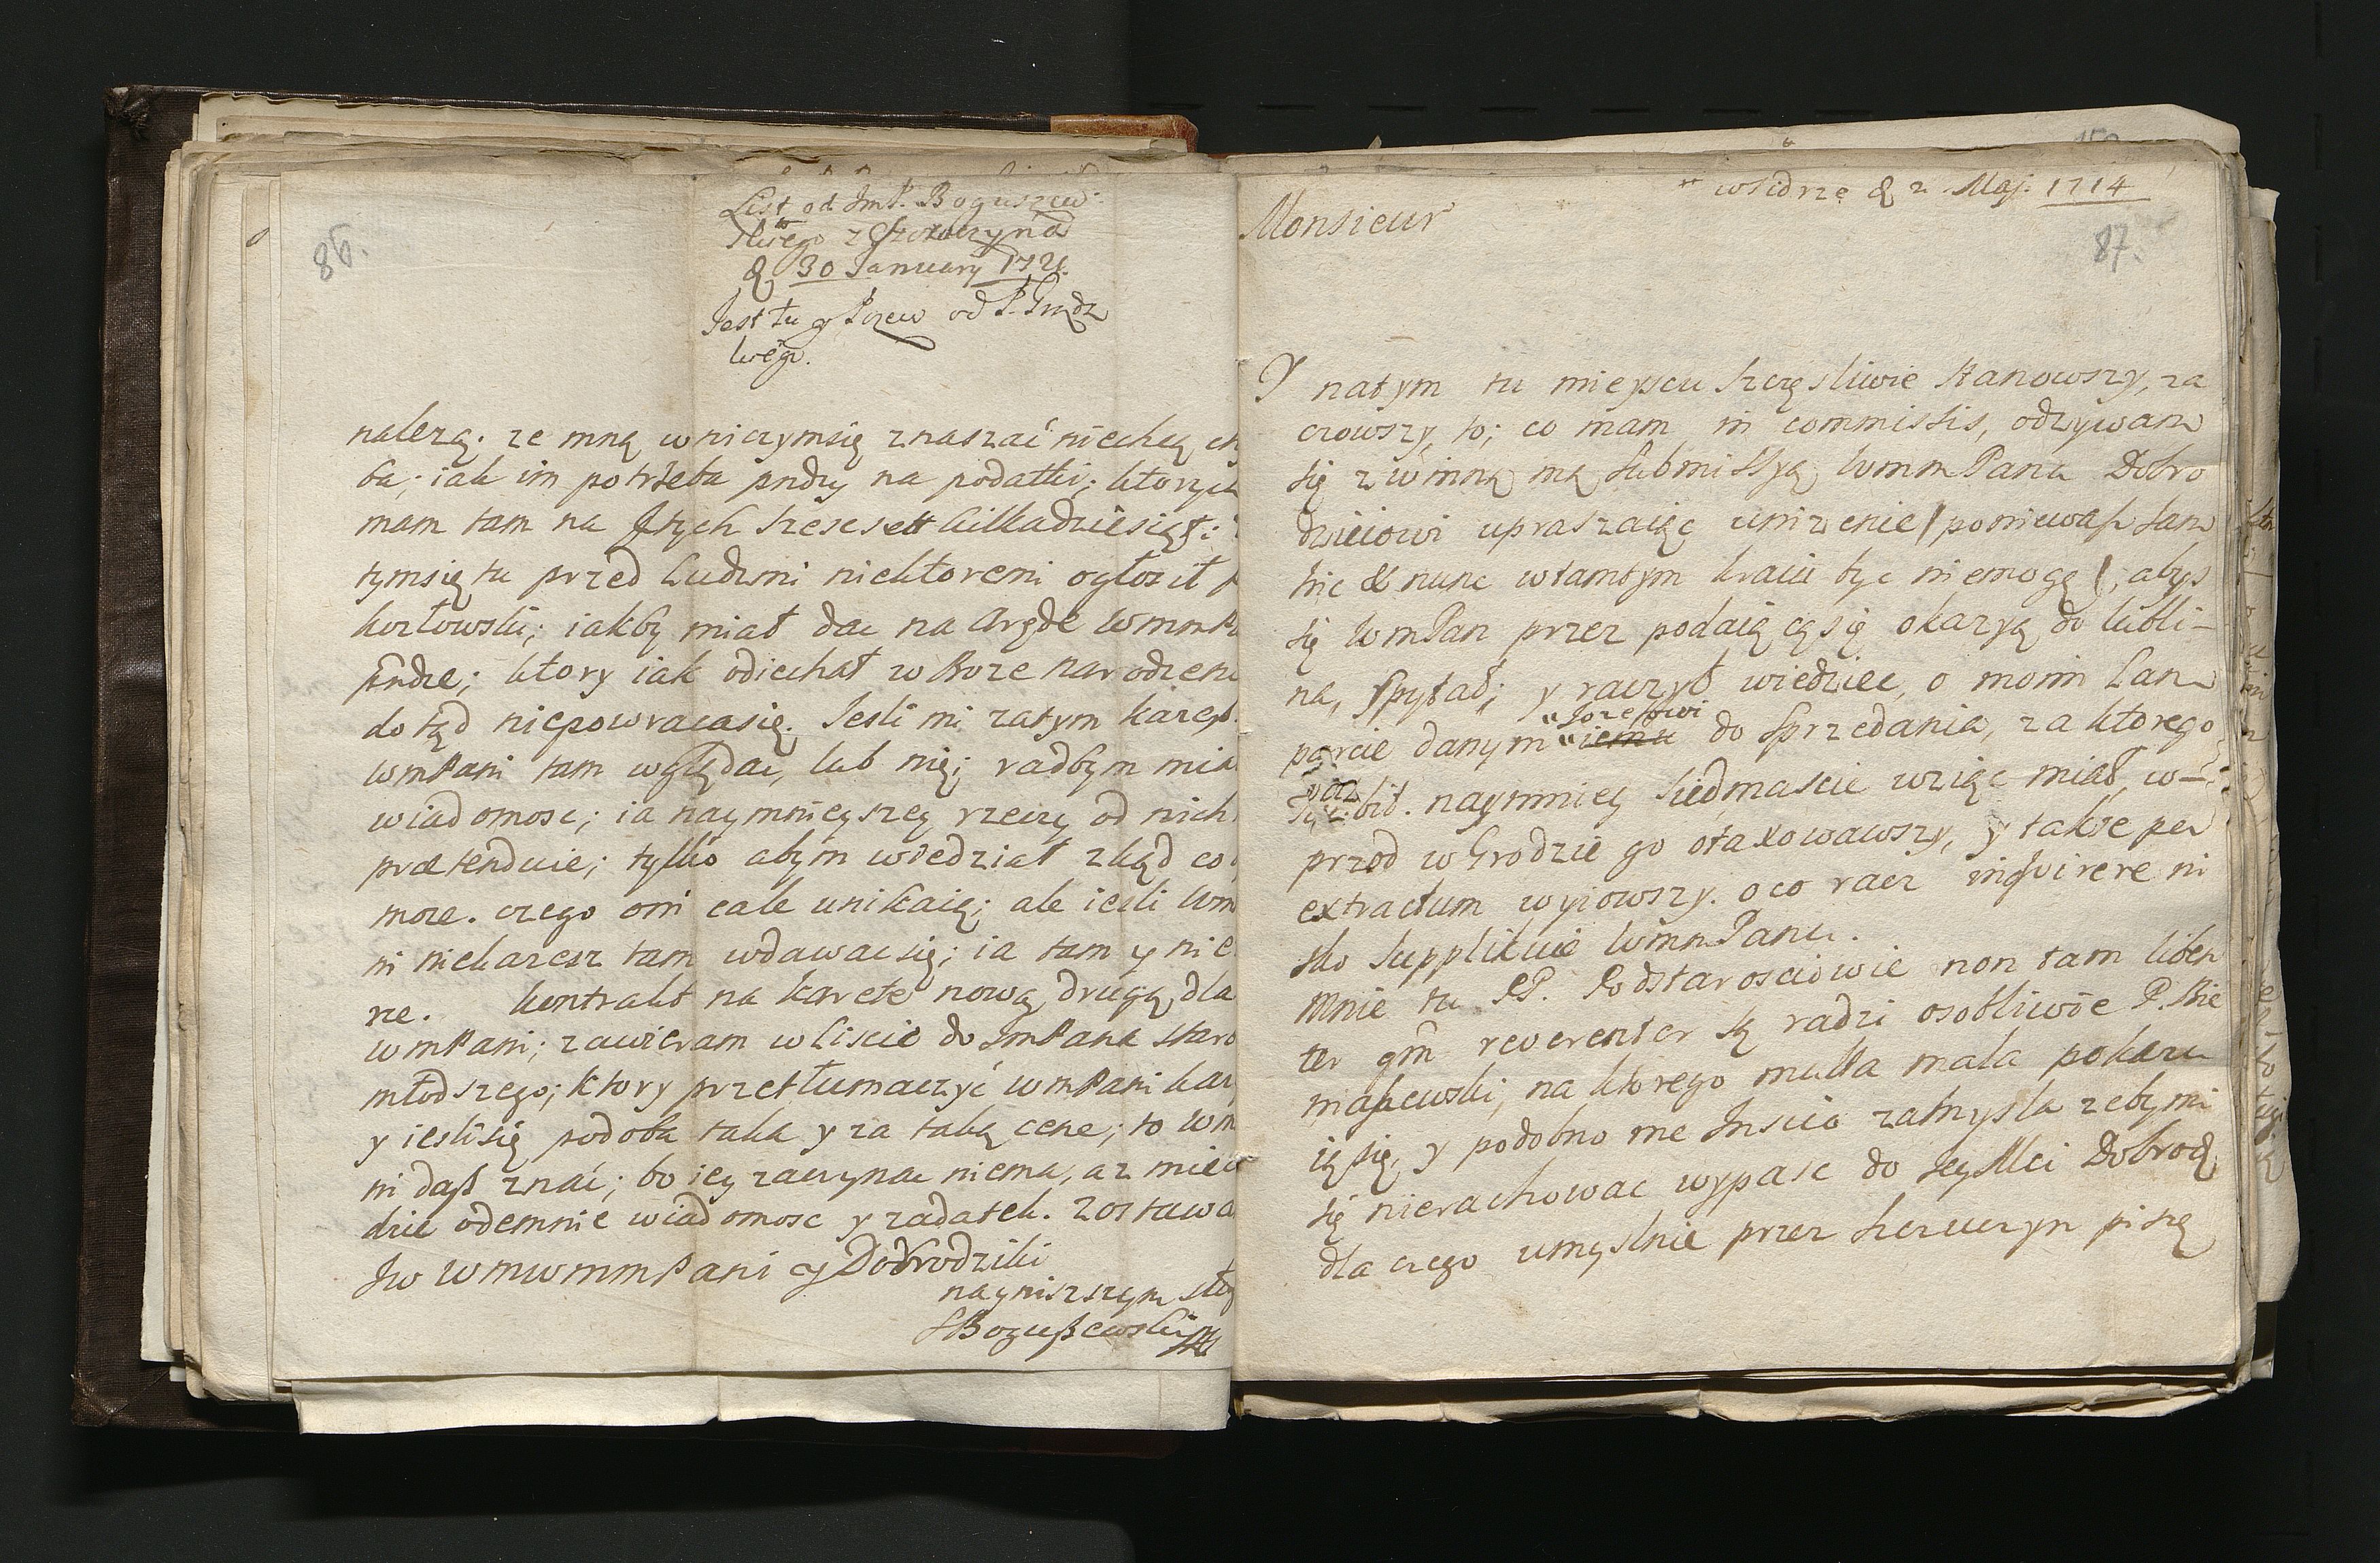 86.
List od JmP. Boguszew-
skiego z
d 30 January 1721.
Jest tu y od P. Grądz
kiego.
należą. ze mną wniczymsię znaszać niechcą
ba; iak im potrzeba pndzy na podatki; ktorych
mam tam na szescsett kilkadziesiąt:
tymsię tu przed ludzmi niektoremi ogłosił
kozłowski; iakby miał dac na Argde WmmP
pndze; ktory iak odiechał w Boze narodzen
dotąd niepowracasię. Iesli mi zatym każesz
wmPani tam wglądac, lub nię; radbym mia
wiadomosc; ia naymnieyszey rzeczy od nich
praetenduie; tylko abym wiedział zkąd co
moze. czego oni cale unikaią; ale iesli Wm
ni niekazesz tam wdawac się; ia tam y nie
ze. kontrakt na karete nową drugą dla
wmPani; zawieram w liscie do JmPana staro
młodszego; ktory przetłumaczyć wmPani
y ieslisię podoba taka y za taką cene; to Wm
ni dasz znać; bo iey zaczynac niema, az
dzie odemnie wiadomosc y zadatek. Zostawa
Jw WmwmmPani y Dobrodziki
nayniszszym słu
SBoguszewski
w Sidrze d 2 Maj. 1714
Monsieur
87.
Y natym tu mieyscu szczęsliwie stanowszy, za
czowszy to; co mam in commissis, odzywam
się z winną mą submissyą WmmPanu Dobro
dzieiowi upraszaiąc unizenie/ poniewasz sam
hic & nunc wtamtym kraiu byc niemogę /, abys
się WmPan przez podaiącąsię okazyą do lubli-
na, spytał; y raczył wiedziec, o moim Lan
parcie danym "Jozefowi iemu do sprzedania, za ktorego
bit. naymniey siedmascie wziąc miał, w-
przod w Grodzie go otaxowawszy, y takze per
extractum wyiowszy. oco racz inqvirere ni
sko supplikuie WmmPanu.
Mnie tu PP. Podstarosciowie non tam liben
ter qm reverenter są radzi osobliwie P. Bie
niaszewski, na ktorego multa mala pokazu
ią się, y podobno me Inscio zamysla zeby mi
się nierachowac wypasc do JeyMci Dobrodz
dla czego umyslnie przez Szczuczyn piszę